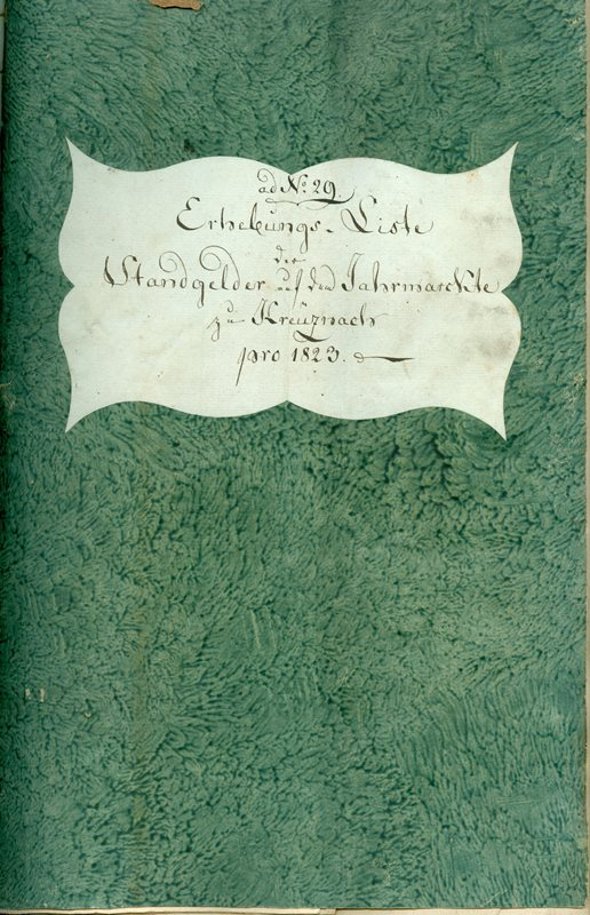 ad No. 29.
Erhebungs-Liste
der
Standgelder auf dem Jahrmarckte
zu Kreüznach
pro 1823.